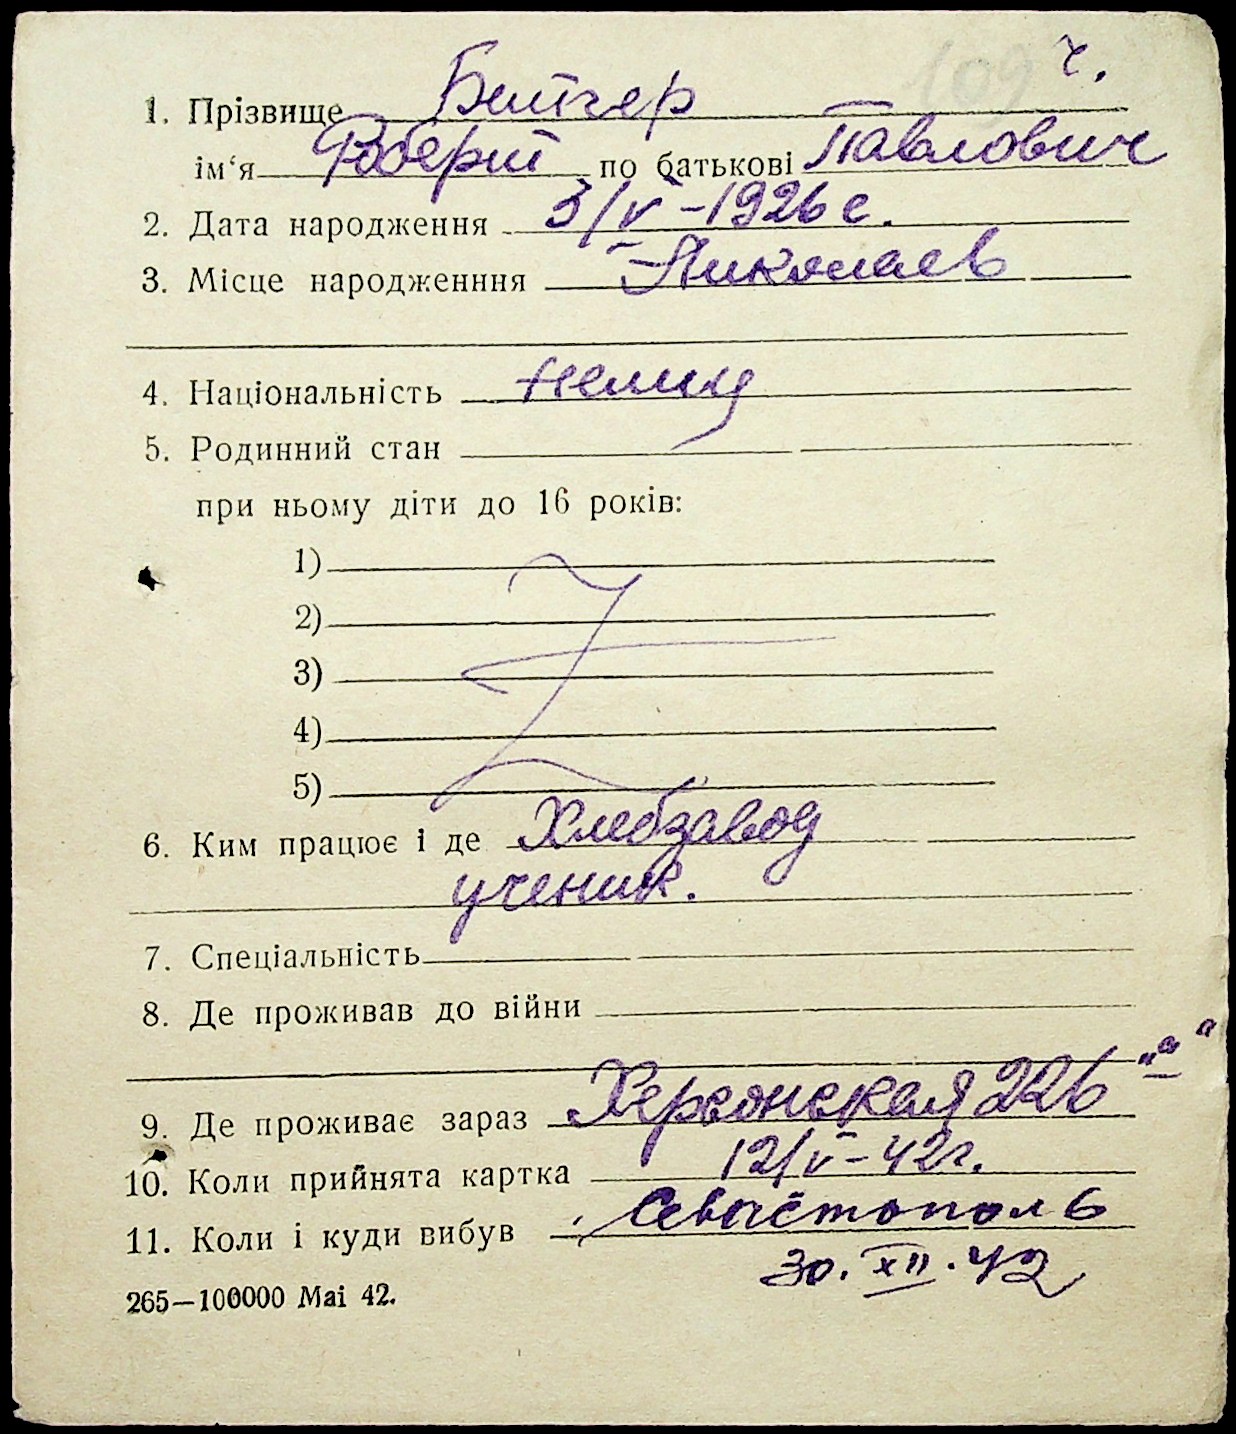 ч.
1. Прізвище Бейтчер
ім‘я Роберт по батькові Павлович
2. Дата народження 3/V-1926 г.
3. Місце народженння Николаев
4. Національність немец
5. Родинний стан
при ньому діти до 16 років:
1)
2)
3)
4)
5)
6. Ким працює і де Хлебзавод
ученик.
7. Спеціальність
8. Де проживав до війни
9. Де проживає зараз Херсонская 226 "а"
10. Коли прийнята картка 12/V-42г.
11. Коли і куди вибув Севастополь
30.XII.42
265—100000 Mai 42.